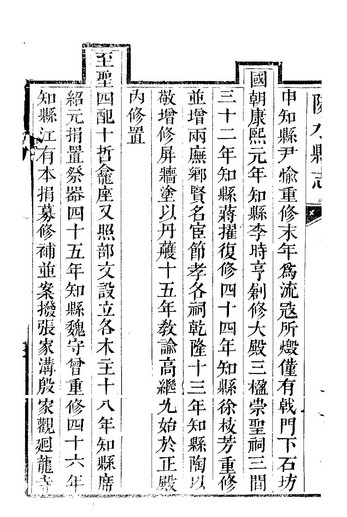 縣志
申知縣尹愉重修末年為流冦所燬僅有戟門下石坊
國朝康熙元年知縣李時亨剏修大殿三楹崇聖祠三間
三十二年知縣蔣擢復修四十四年知縣徐枝芳重修
並增兩廡鄉賢名宦節孝各祠乾隆十三年知縣陶以
敬增修屏牆塗以丹雘十五年教諭高繼光始於正殿
內修置
至聖四配十哲龕座又照部文設立各木主十八年知縣席
紹元捐置祭器四十五年知縣魏守曾重修四十六年
知縣江有本捐募修補並案撥張家溝殷家觀迴龍寺